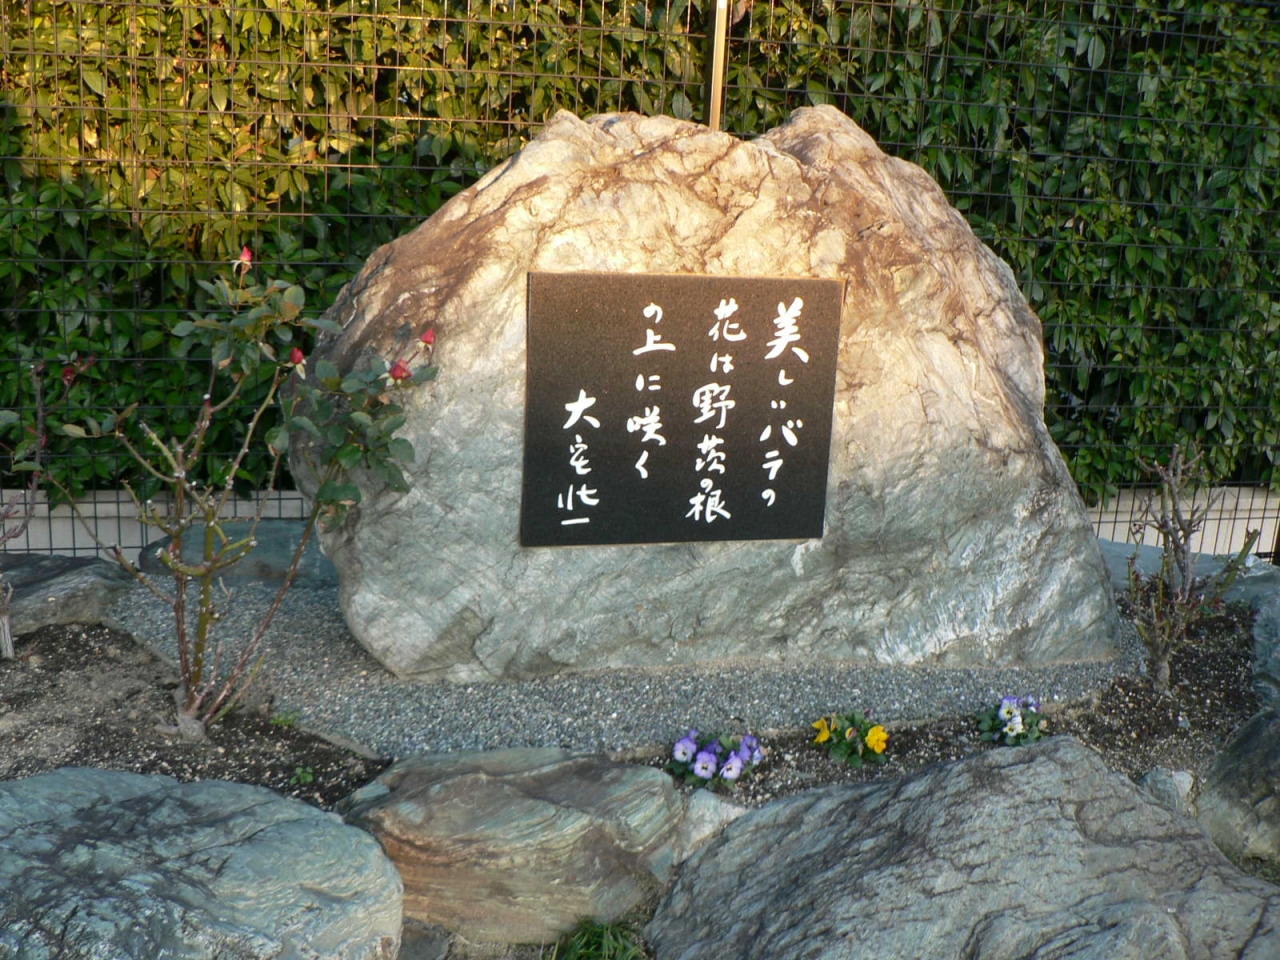 美しいバラの
花は野茨の根
の上に咲く
大宅壮一